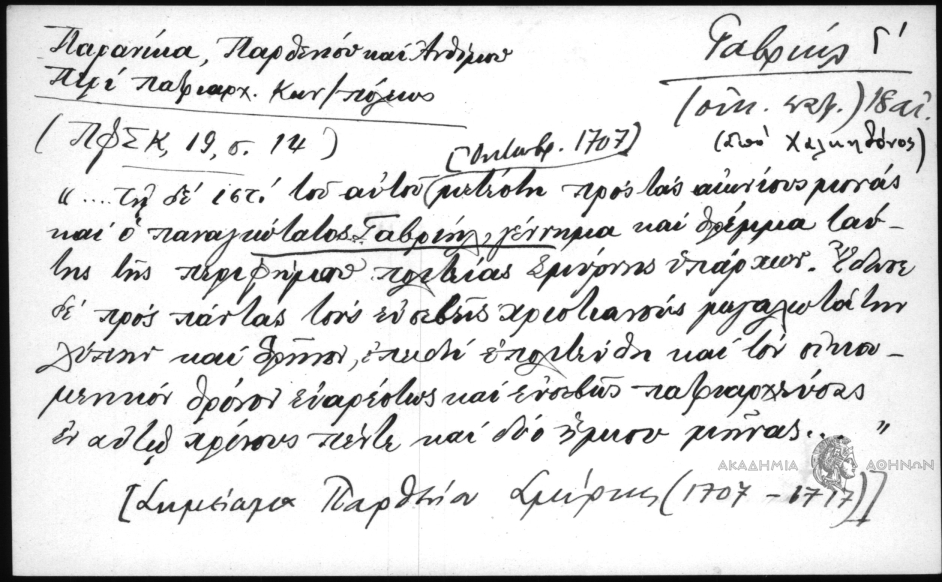 Παρανίκα, Παρθενίου καί Ανθίμου
Περί πατριαρχ. Κων/πόλεως
Γαβριήλ Γ'
(οἰκ. πατ.) 18 αἰ.
(ἀπό Χαλκηδόνος)
(ΠΦΣΚ, 19, σ. 14)
(Ὀκτωβρ. 1707)
"....τῇ δέ ιστ' τοῦ αὐτοῦ μετέστη πρός τάς αἰωνίους μονάς
καί ὁ παναγιώτατος Γαβριήλ, γέννημα καί θρέμμα ταύ-
της τῆς περιφήμου πολιτείας Σμύρνης ὑπάρχων. Ἔδωσε
δέ πρός πάντας τούς εὐσεβεῖς χριστιανούς μεγαλωτάτην
λύπην καί θρῆνον, ἐπειδή ἐπολιτεύθη καί τόν οἰκου-
μενικόν θρόνον εὐαρέστως καί εὐσεβῶς πατριαρχεύσας
ἐν αὐτῷ χρόνους πέντε καί δύο ἥμισυ μῆνας...."
ΑΚΑΔΗΜΙΑ ΑΘΗΝΩΝ
[Σημείωμα Παρθενίου Σμύρνης (1707 - 1717)]